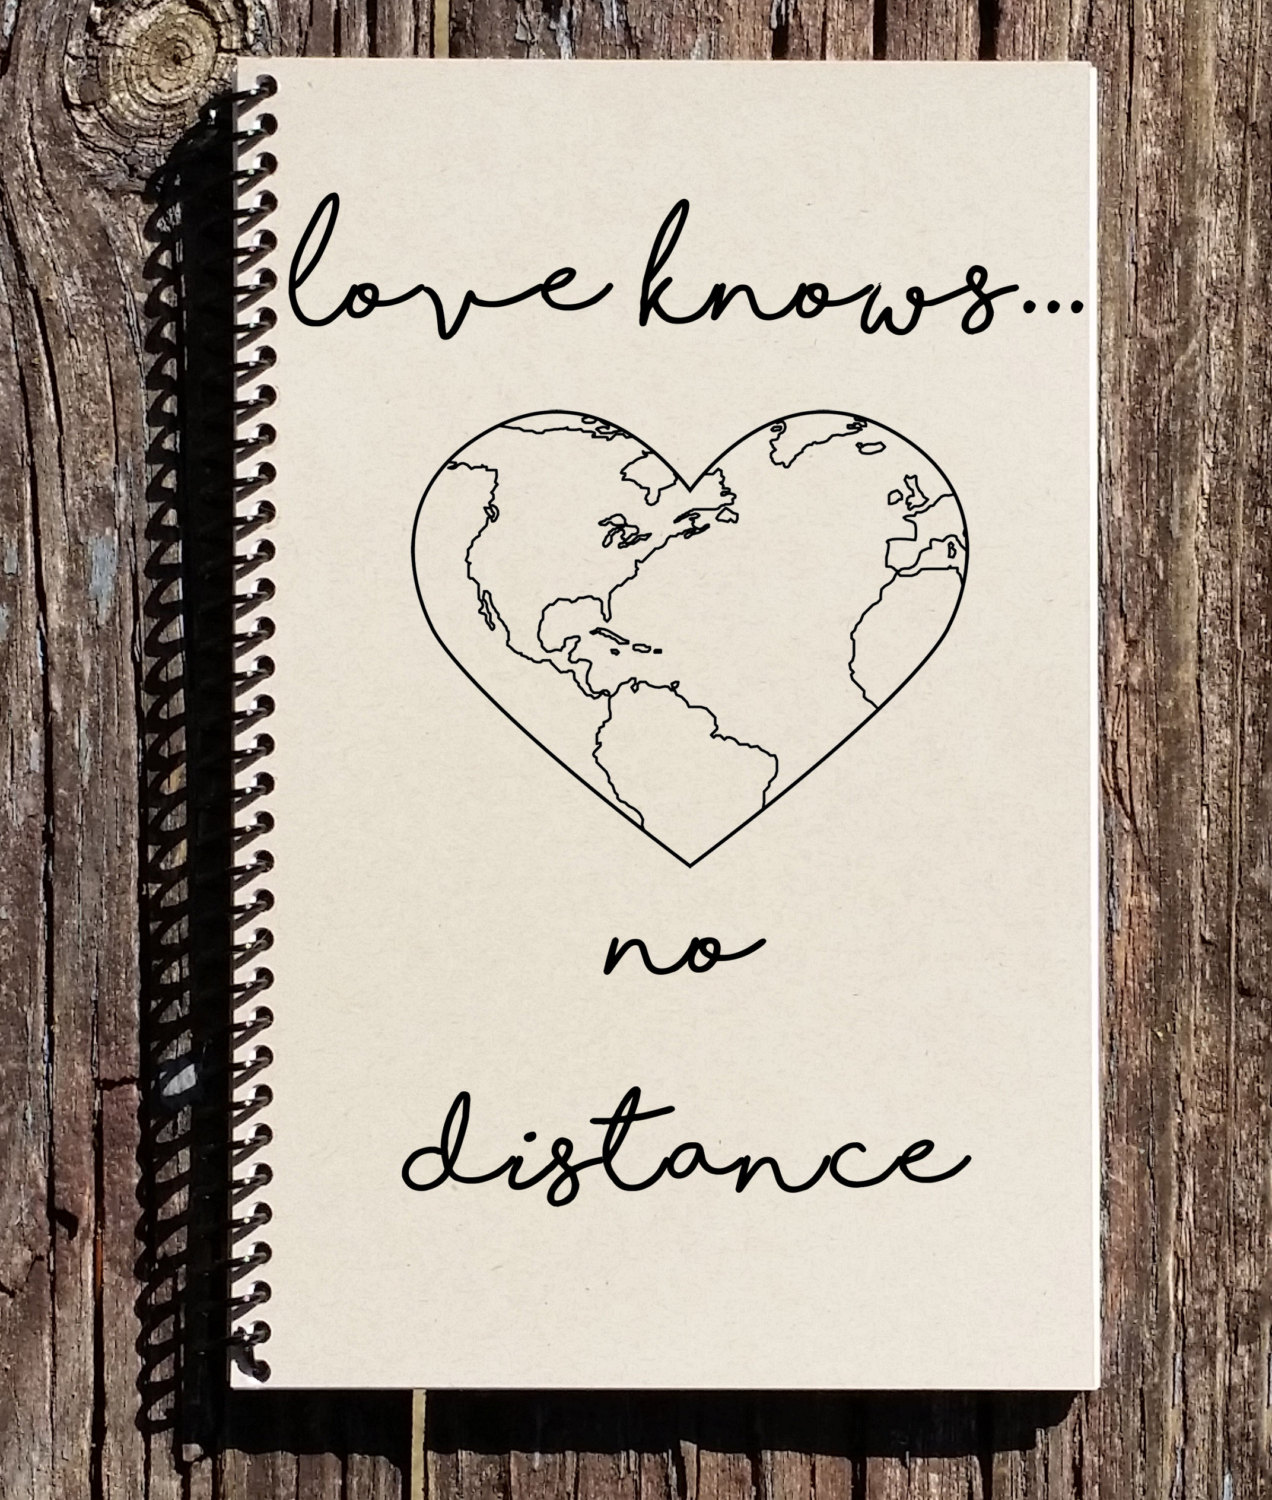 love knows...
no
distance